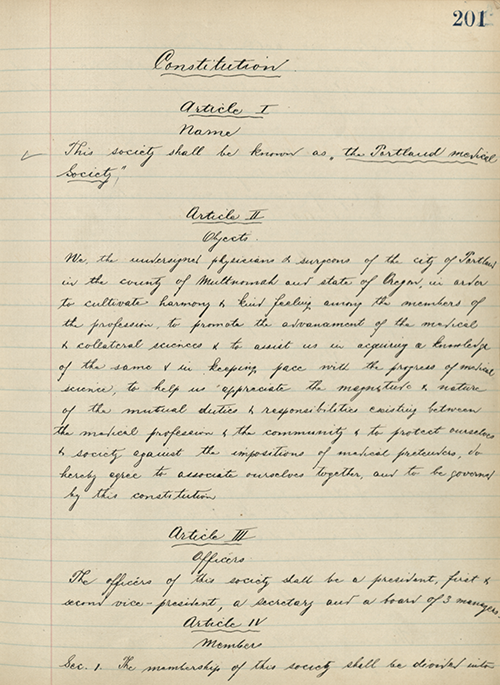 201
Constitution
Article I
Name
This society shall be known as, "the Portland medical
Society,"
Article II
Objects.
We, the undersigned physicians & surgeons of the city of Portland
in the county of Multnomah and state of Oregon, in order
to cultivate harmony & kind feeling among the members of
the profession, to promote the advancement of the medical
& collateral sciences & to assist us in acquiring a knowledge
of the same & in keeping pace with the progress of medical
science, to help us appreciate the magnitude & nature
of the mutual duties & responsibilities existing between
the medical profession & the community & to protect ourselves
& society against the impositions of medical pretenders, do
hereby agree to associate ourselves together, and to be governed
by this constitution
Article III
Officers
The officers of this society shall be a president, first &
second vice-president, a secretary and a board of 3 managers.
Article IV
Members
Sec. 1. The membership of this society shall be divided into